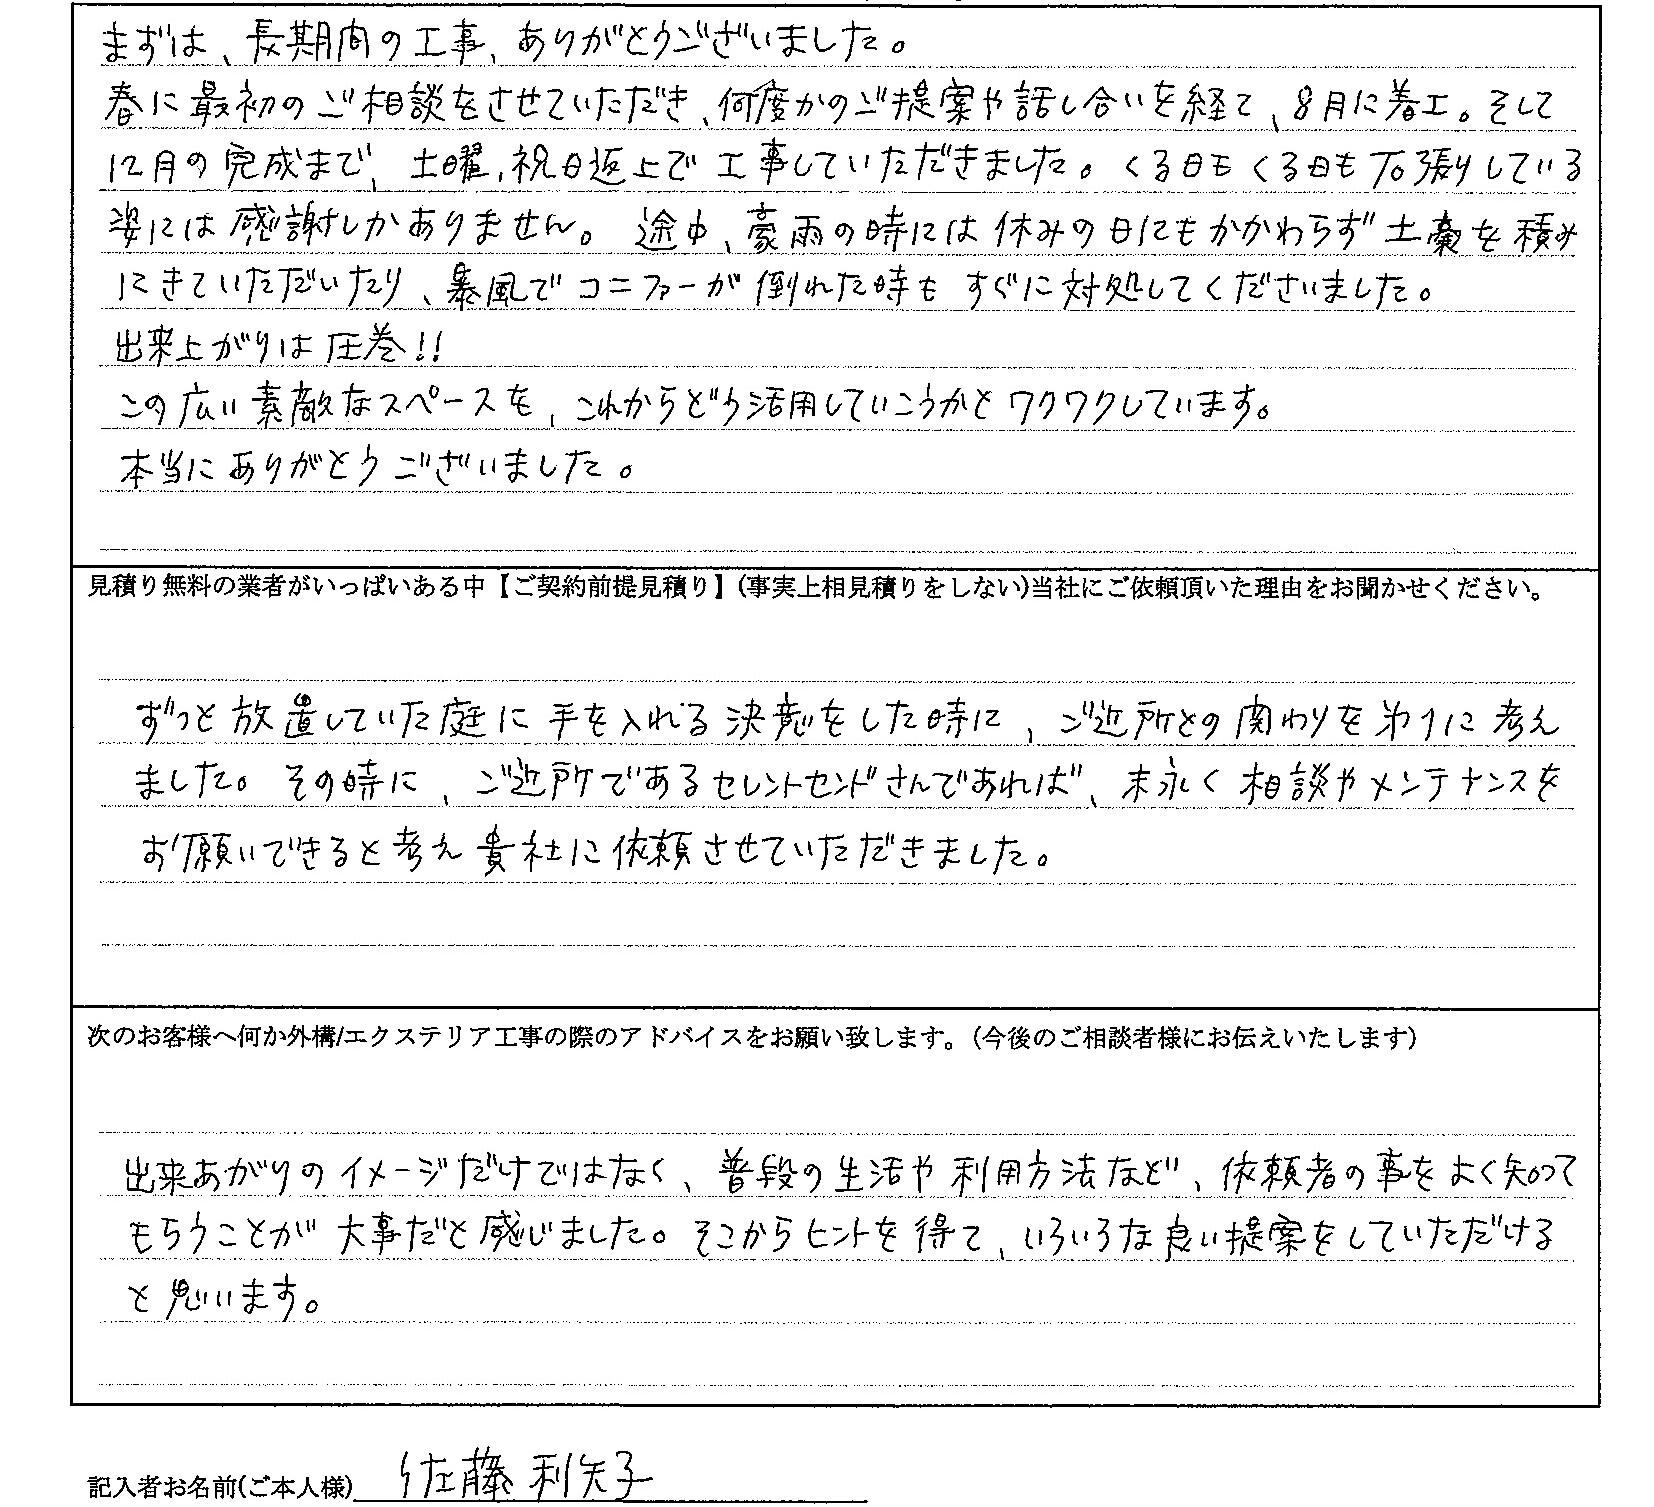 まずは、長期間の工事、ありがとうございました。
春に最初のご相談をさせていただき、何度かのご提案や話し合いを経て、8月に着工。そして
12月の完成まで、土曜、祝日返上で工事していただきました。くる日もくる日も石張りしている
姿には感謝しかありません。途中、豪雨の時には休みの日にもかかわらず土嚢を積み
にきていただいたり、暴風でコニファーが倒れた時もすぐに対処してくださいました。
出来上がりは圧巻!!
この広い素敵なスペースを、これからどう活用していこうかとワクワクしています。
本当にありがとうございました。
見積り無料の業者がいっぱいある中【ご契約前提見積り】(事実上相見積りをしない)当社にご依頼頂いた理由をお聞かせください。
ずっと放置していた庭に手を入れる決意をした時に、ご近所との関わりを第1に考え
ました。その時に、ご近所であるセレントセンドさんであれば、末永く相談やメンテナンスを
お願いできると考え貴社に依頼させていただきました。
次のお客様へ何か外構/エクステリア工事の際のアドバイスをお願い致します。(今後のご相談者様にお伝えいたします)
出来あがりのイメージだけではなく、普段の生活や利用方法など、依頼者の事をよく知って
もらうことが大事だと感じました。そこからヒントを得て、いろいろな良い提案をしていただける
と思います。
記入者お名前(ご本人様) 佐藤利矢子